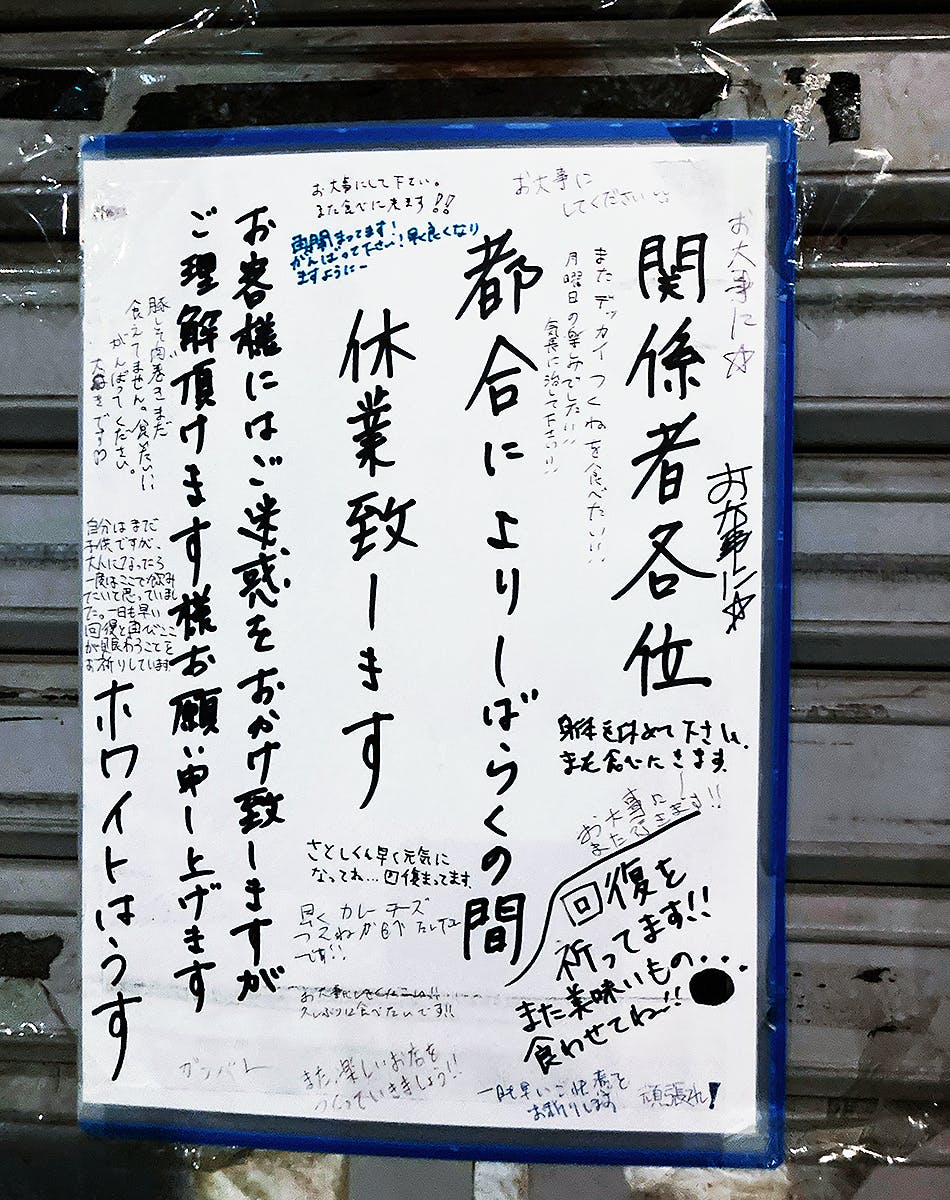 関係者各位
都合によりしばらくの間
休業致します
お客様にはご迷惑をおかけ致しますが
ご理解頂けます様お願い申し上げます
ホワイトはうす
お大事にして下さい。
また食べに来ます!!
お大事に
してください
再開まってます!
がんばって下さい!早く良くなり
ますように
お大事に☆
お大事に☆
またデッカイつくねを食べたい!!
月曜日の楽しみでした!!
気長に治して下さい!!
豚しそ肉巻きまだ
食えてません。食べたいに
がんばってください。
大好きです
自分はまだ
子供ですが、
大人になったら
一度はここで飲み
たいと思っていまし
た。一日も早い
回復と再びここ
が賑わうことを
お祈りしています
身体を休めて下さい、
また食べにきます。
お大事に
またきます!!
回復を
祈ってます!!
また美味いもの...
食わせてね〜!!
さとしくん早く元気に
なってね...回復まってます。
早くカレーチーズ
つくねが
です!!
久しぶりに食べたいです!!
ガンバレ
また、楽しいお店を
つくっていきましょう!!
一日も早いご快復を
お祈りします
頑張れ!